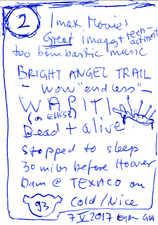 2
Imax Movie:
Great images tech
too bombastic music
BRIGHT ANGEL TRAIL
- wow "endless" -
WAPITI
(= ELKS)
Dead + alive
Stopped to sleep
30 miles before Hoover
Dam @ TEXACO on
93 Cold/Nice
7 V 2017